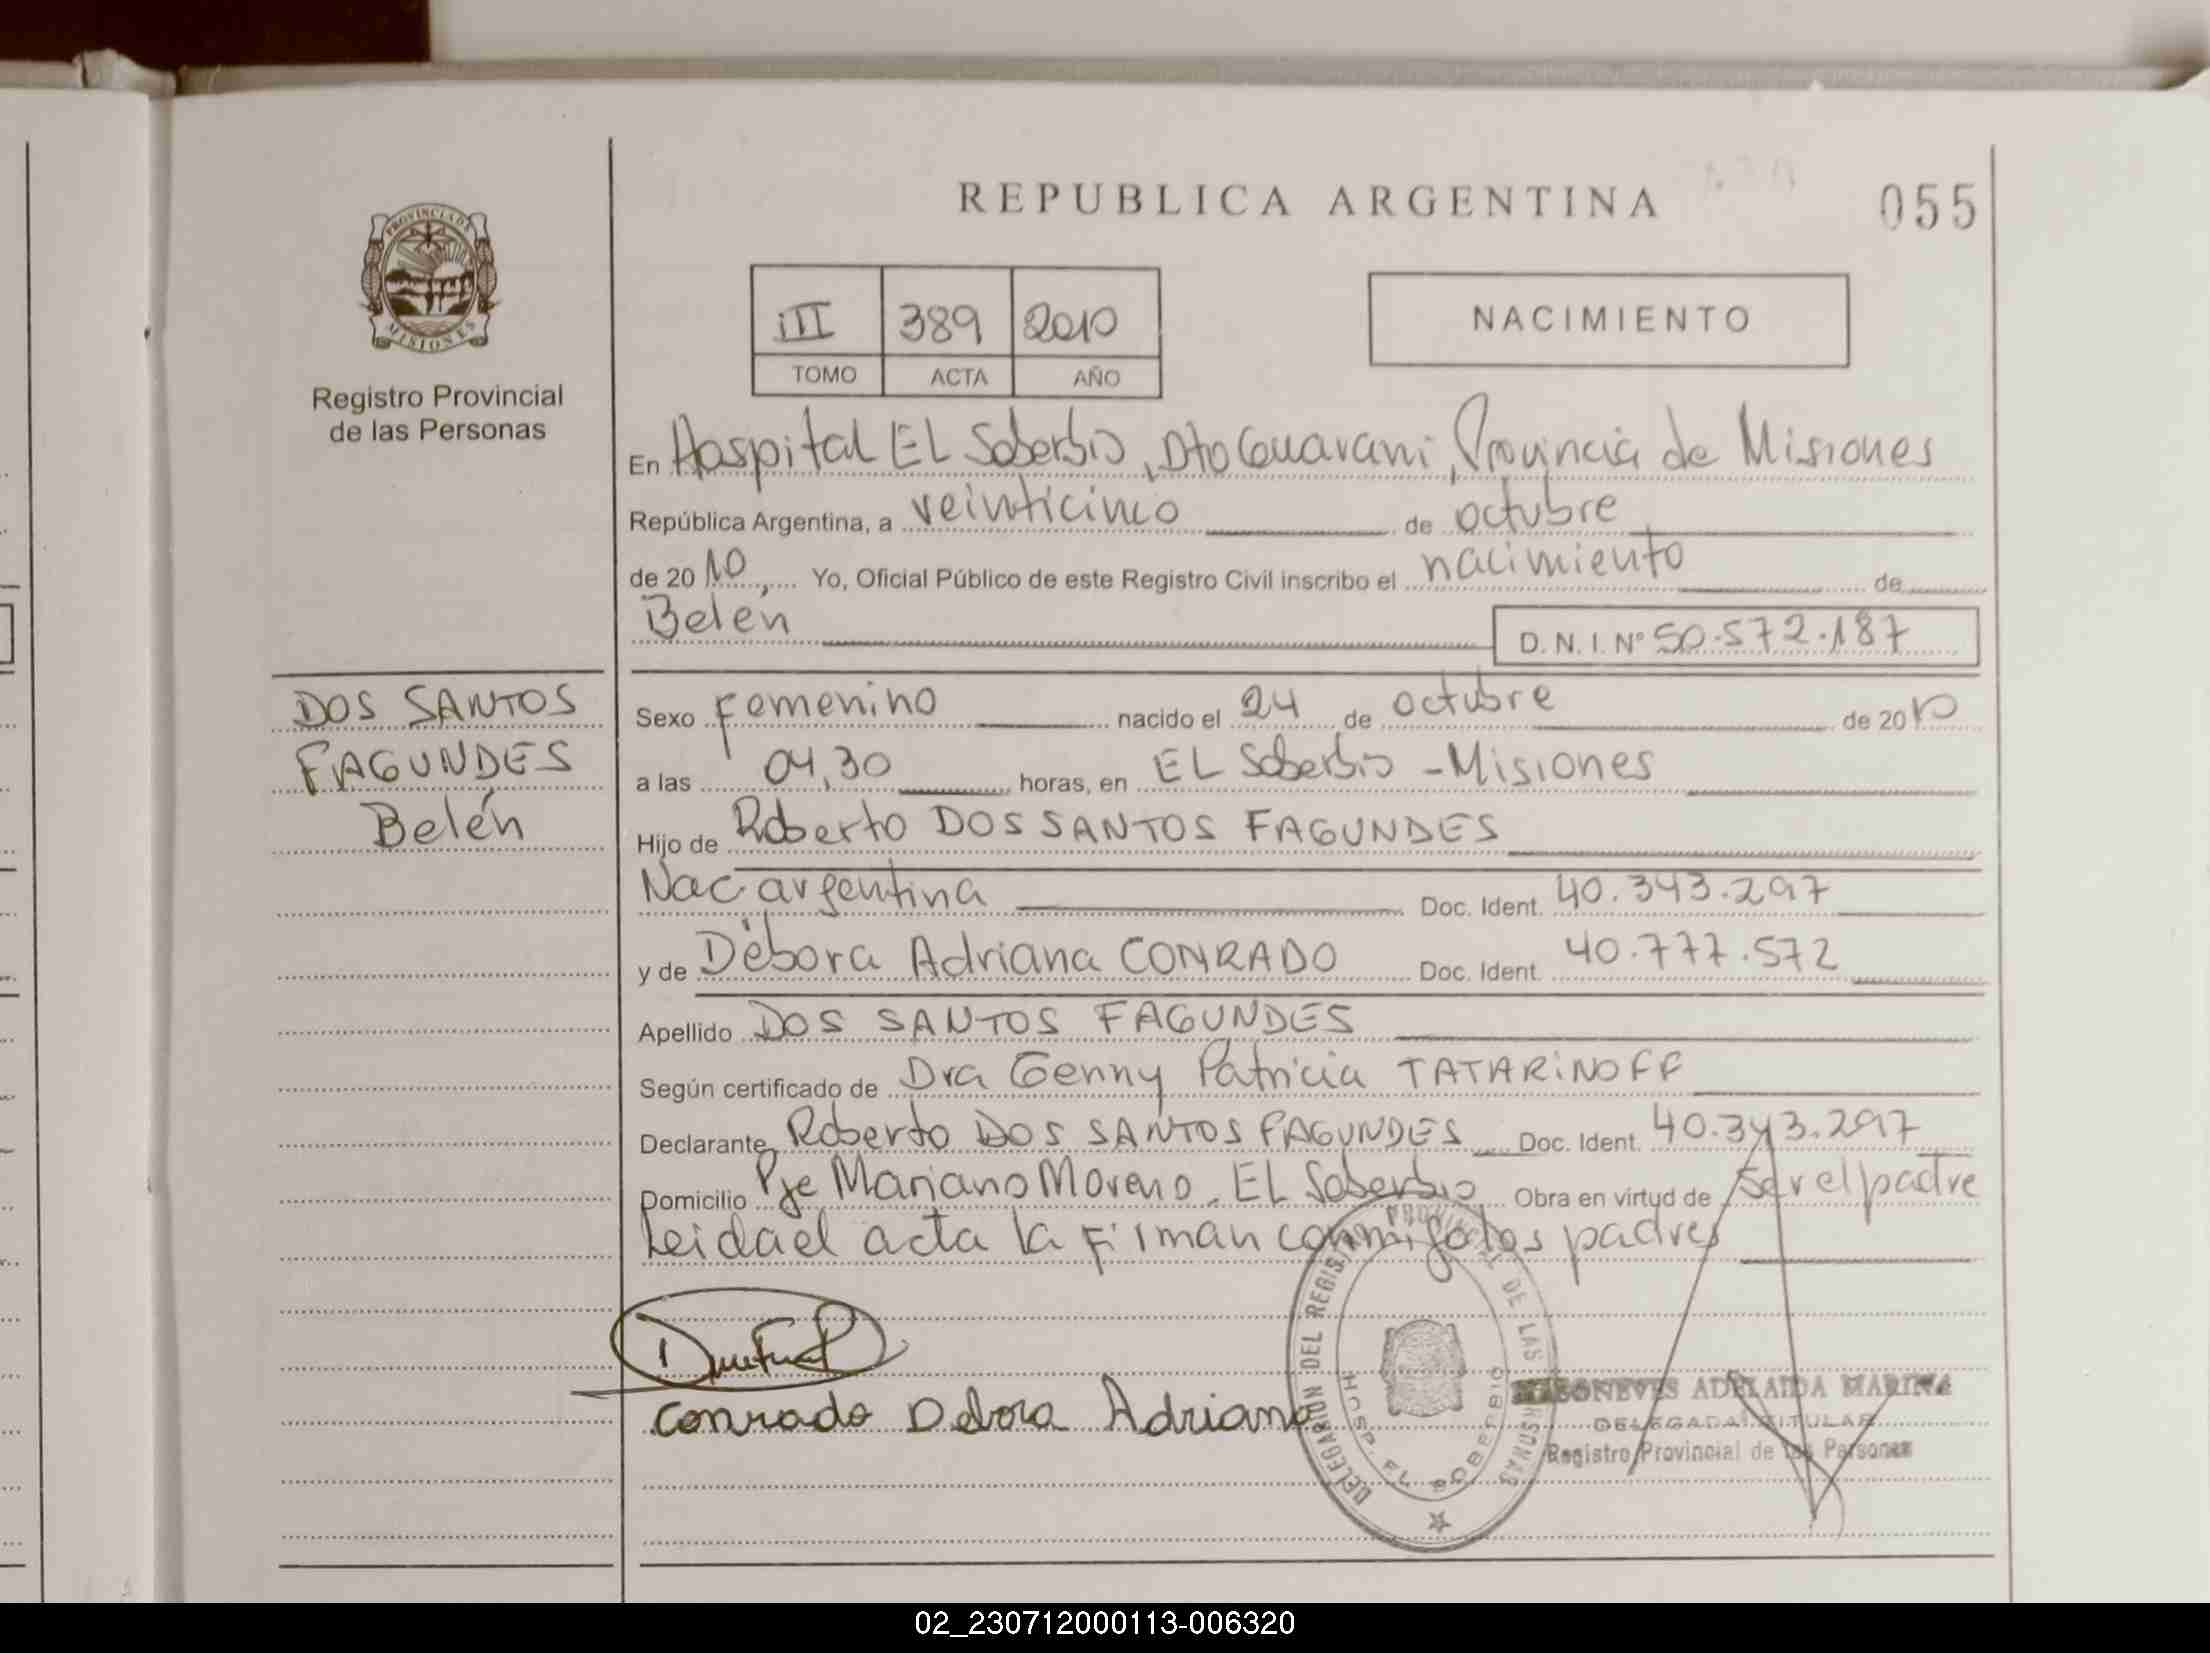 REPUBLICA ARGENTINA
055
PROVINCIA DE
MISIONES
Registro Provincial
de las Personas
III 389 2010
TOMO ACTA AÑO
NACIMIENTO
En Hospital EL Soberbio, Dto Guarani, Provincia de Misiones
República Argentina, a veinticinco de octubre
de 2010, Yo, Oficial Público de este Registro Civil inscribo el nacimiento de
Belén
D. N. I. Nº 50.572.187
DOS SANTOS
FAGUNDES
Belén
Sexo Femenino nacido el 24 de octubre de 2010
a las 04,30 horas, en EL Soberbio - Misiones
Hijo de Roberto DOS SANTOS FAGUNDES
Nac argentina Doc. Ident. 40.343.297
y de Débora Adriana CONRADO Doc. Ident. 40.777.572
Apellido DOS SANTOS FAGUNDES
Según certificado de Dra Genny Patricia TATARINOFF
Declarante Roberto DOS SANTOS FAGUNDES Doc. Ident. 40.343.297
Domicilio Pje Mariano Moreno. EL Soberbio Obra en virtud de Ser el padre
Leida el acta la firman conmigo los padres
Conrado Debora Adriana
DELEGACION DEL REGISTRO PROVINCIAL DE LAS PERSONAS
HOSP. EL SOBERBIO
ADELAIDA MARINA
DELEGADA TITULAR
Registro Provincial de las Personas
02_230712000113-006320